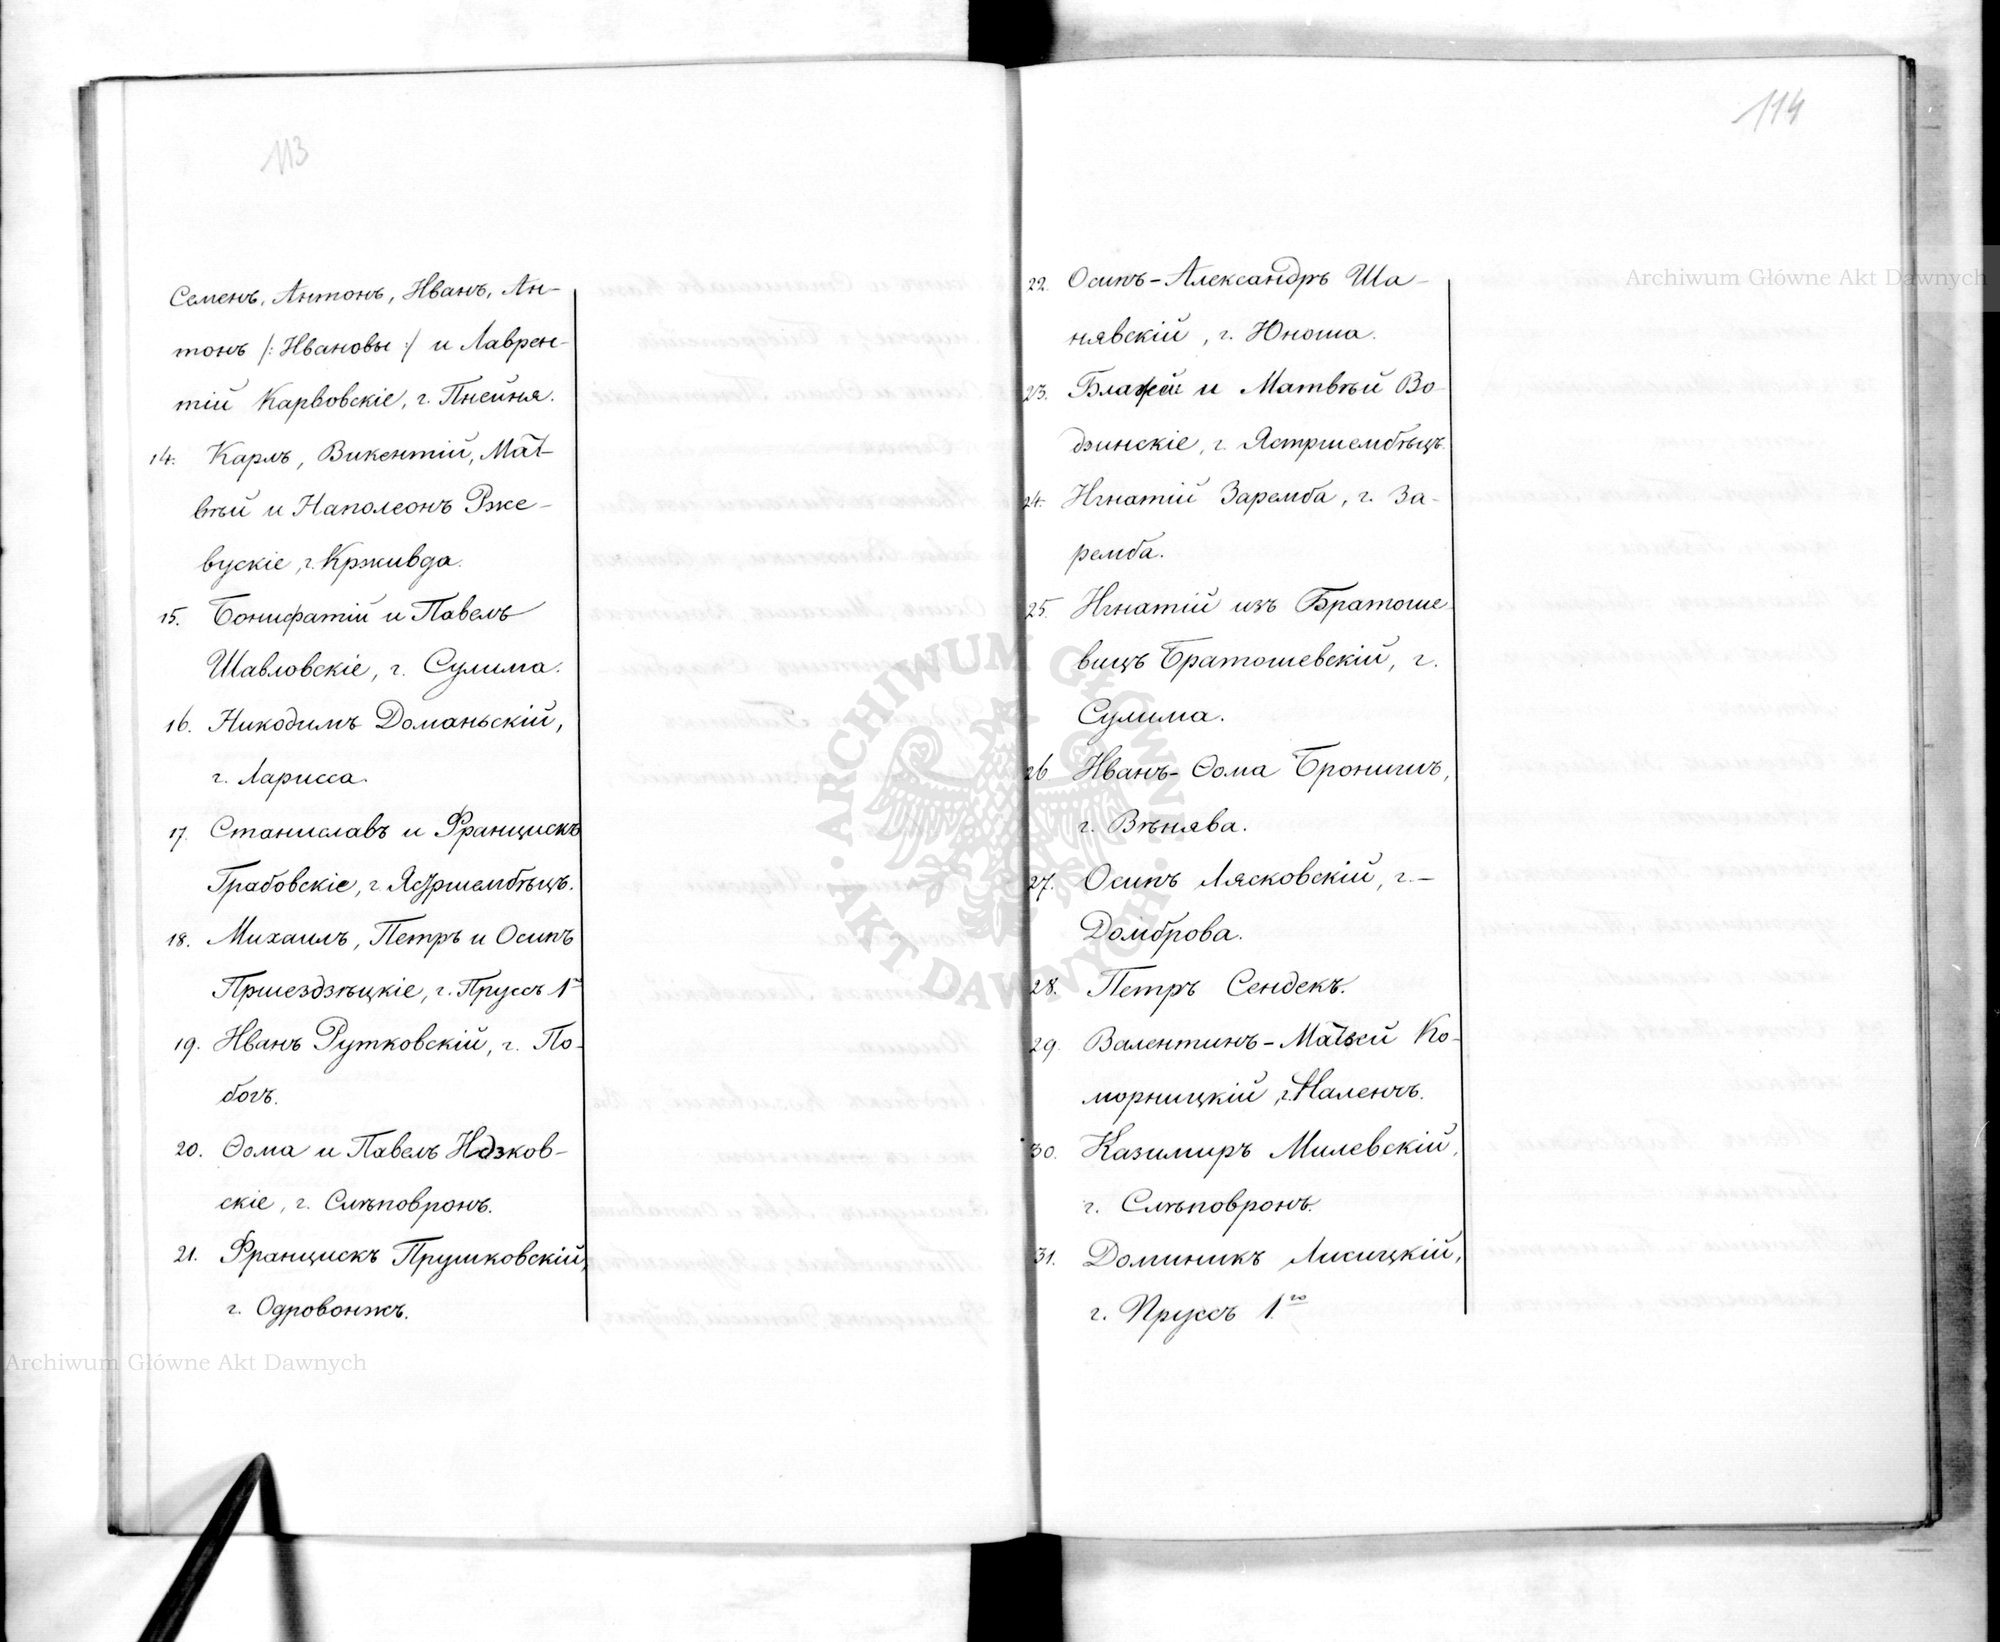 113
Семенъ, Антонъ, Иванъ, Ан-
тонъ /: Ивановы :/ и Лаврен-
тій Карвовскіе, г. Пнейня.
14. Карлъ, Викентій, Мат-
вѣй и Наполеонъ Рже-
вускіе, г. Крживда.
15. Бонифатій и Павелъ
Шавловскіе, г. Сулима.
16. Никодимъ Доманьскій,
г. Ларисса.
17. Станиславъ и Францискъ
Грабовскіе, г. Ястршембѣцъ.
18. Михаилъ, Петръ и Осипъ
Пршездзѣцкіе, г. Пруссъ 1го
19. Иванъ Рутковскій, г. По-
богъ.
20. Ѳома и Павелъ Нозков-
скіе, г. Слѣповронъ.
21. Францискъ Прушковскій,
г. Одровонжъ.
114
22. Осипъ-Александръ Ша-
нявскій, г. Юноша.
23. Блажей и Матвѣй Во-
дзинскіе, г. Ястршембѣцъ.
24. Игнатій Заремба, г. За-
ремба.
25. Игнатій изъ Братоше-
вицъ Братошевскій, г.
Сулима.
26 Иванъ-Ѳома Бронишъ,
г. Вѣнява.
27. Осипъ Лясковскій, г.-
Домброва.
28. Петръ Сендекъ.
29. Валентинъ-Матвей Ко-
морницкій, г. Наленчъ.
30. Казимиръ Милевскій,
г. Слѣповронъ.
31. Доминикъ Лисицкій,
г. Пруссъ 1го
Archiwum Główne Akt Dawnych
Archiwum Główne Akt Dawnych
ARCHIWUM GŁÓWNE · AKT DAWNYCH ·